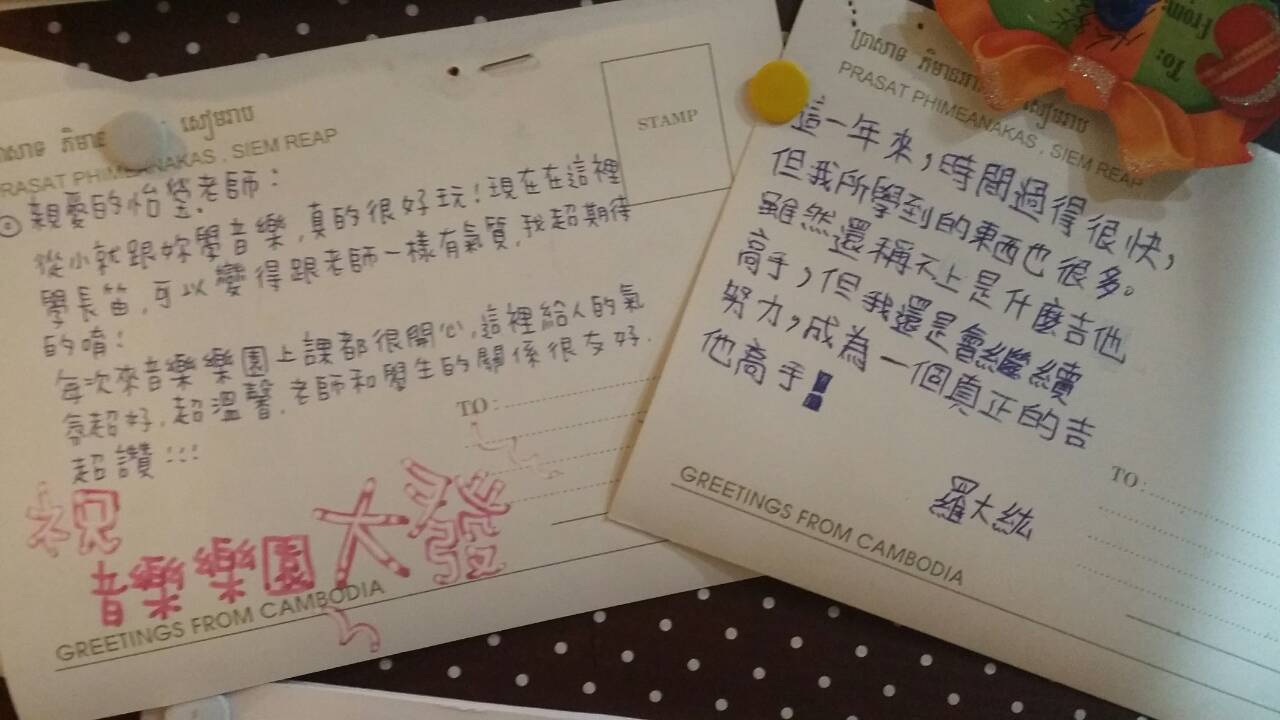 សៀមរាប
PRASAT PHIMEANAKAS . SIEM REAP
STAMP
親愛的怡莹老師：
從小就跟妳學音樂,真的很好玩!現在在這裡
學長笛,可以變得跟老師一樣有氣質,我超期待
的唷!
每次來音樂樂園上課都很開心,這裡給人的氣
氛超好,超溫馨,老師和學生的關係很友好.
超讚!!!
TO:
祝
音樂樂園大發
GREETINGS FROM CAMBODIA
ប្រាសាទ ភិមានអាកាស
PRASAT PHIMEANAKAS, SIEM REAP
這一年來,時間過得很快,
但我所學到的東西也很多。
雖然還稱不上是什麼吉他
高手,但我還是會繼續
努力,成為一個真正的吉
他高手!
羅大紘
TO:
GREETINGS FROM CAMBODIA
To:
From: